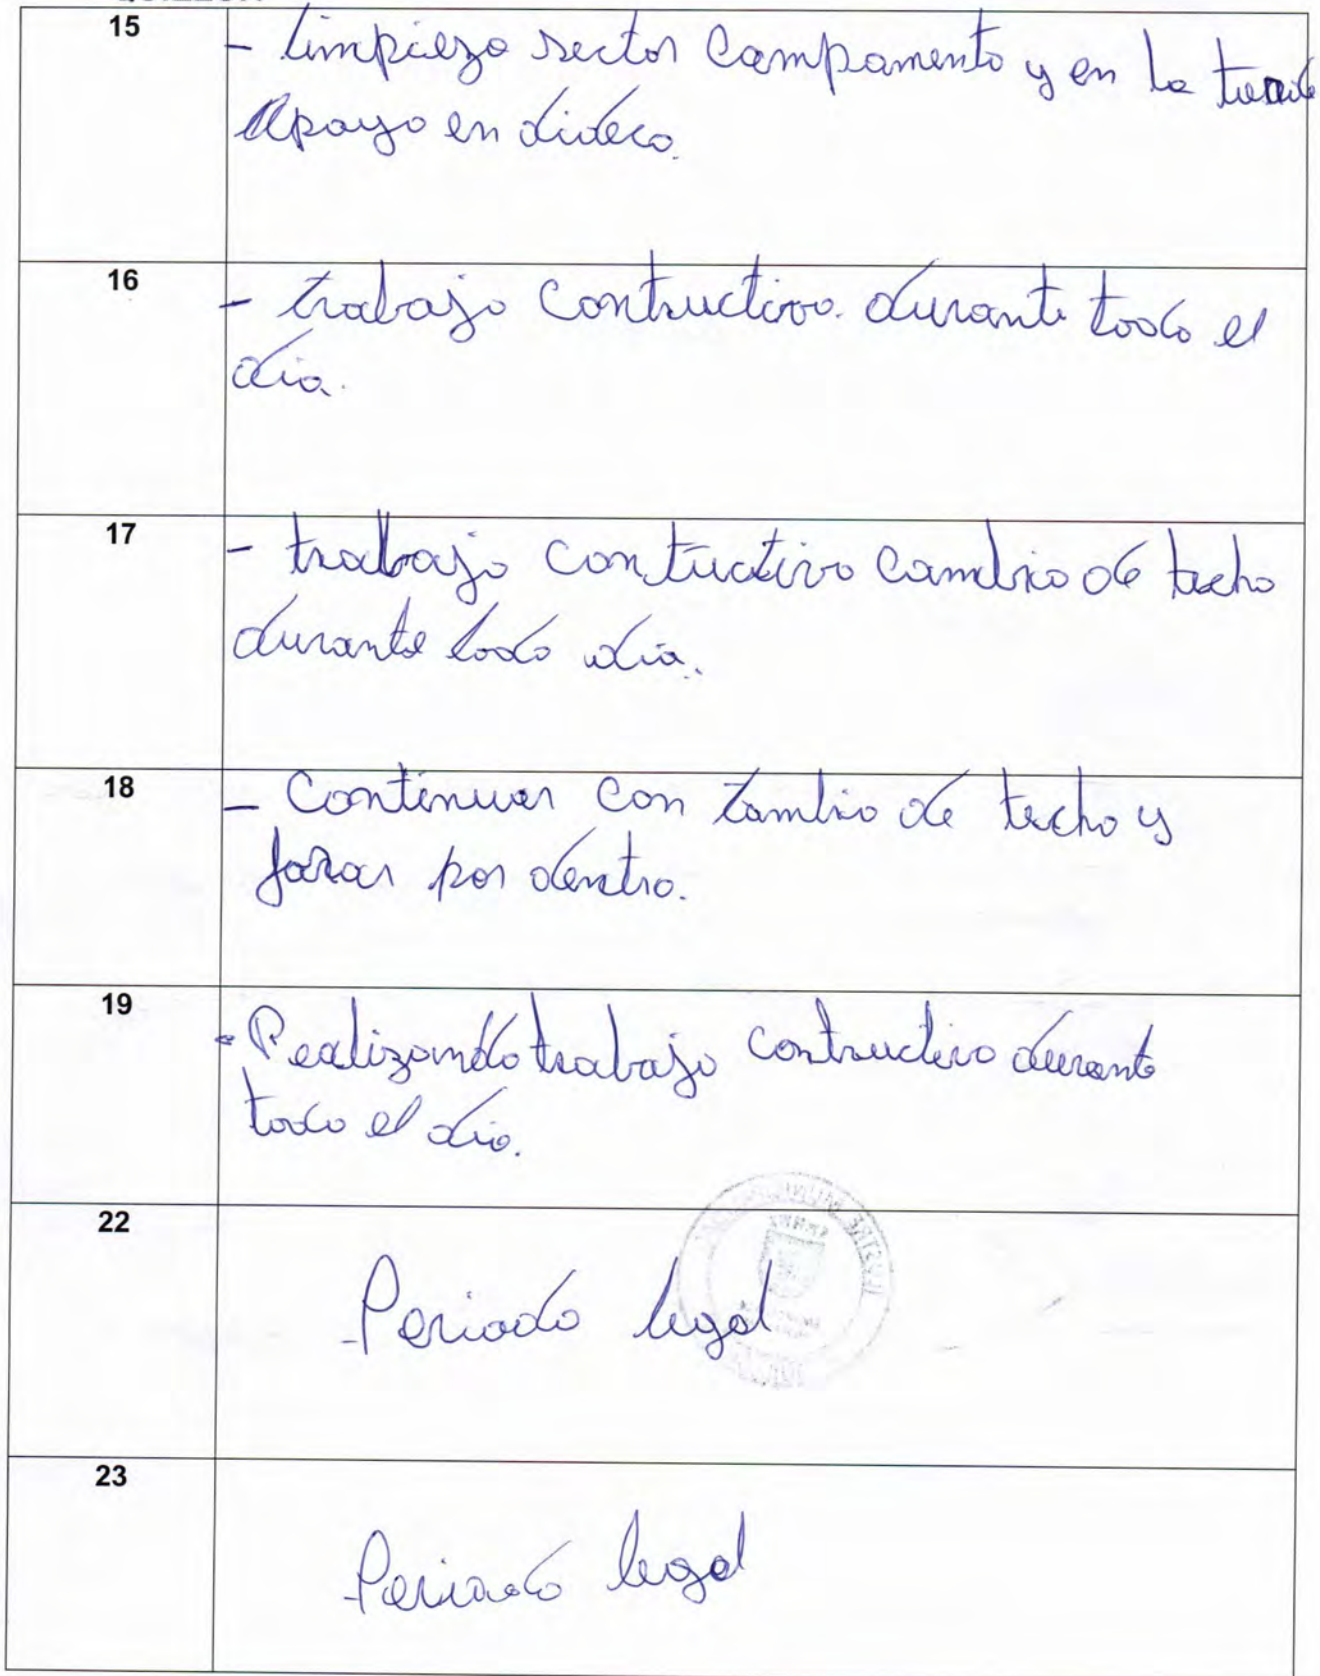 15
- limpieza sector Campamento y en la tarde
Apoyo en dideco.
16
- trabajo contructivo durante todo el
dia.
17
- trabajo contructivo cambio de techo
durante todo dia.
18
- Continuar con cambio de techo y
forrar por dentro.
19
- Realizando trabajo contructivo durante
todo el dia.
22
- Periodo legal
23
- Periodo legal